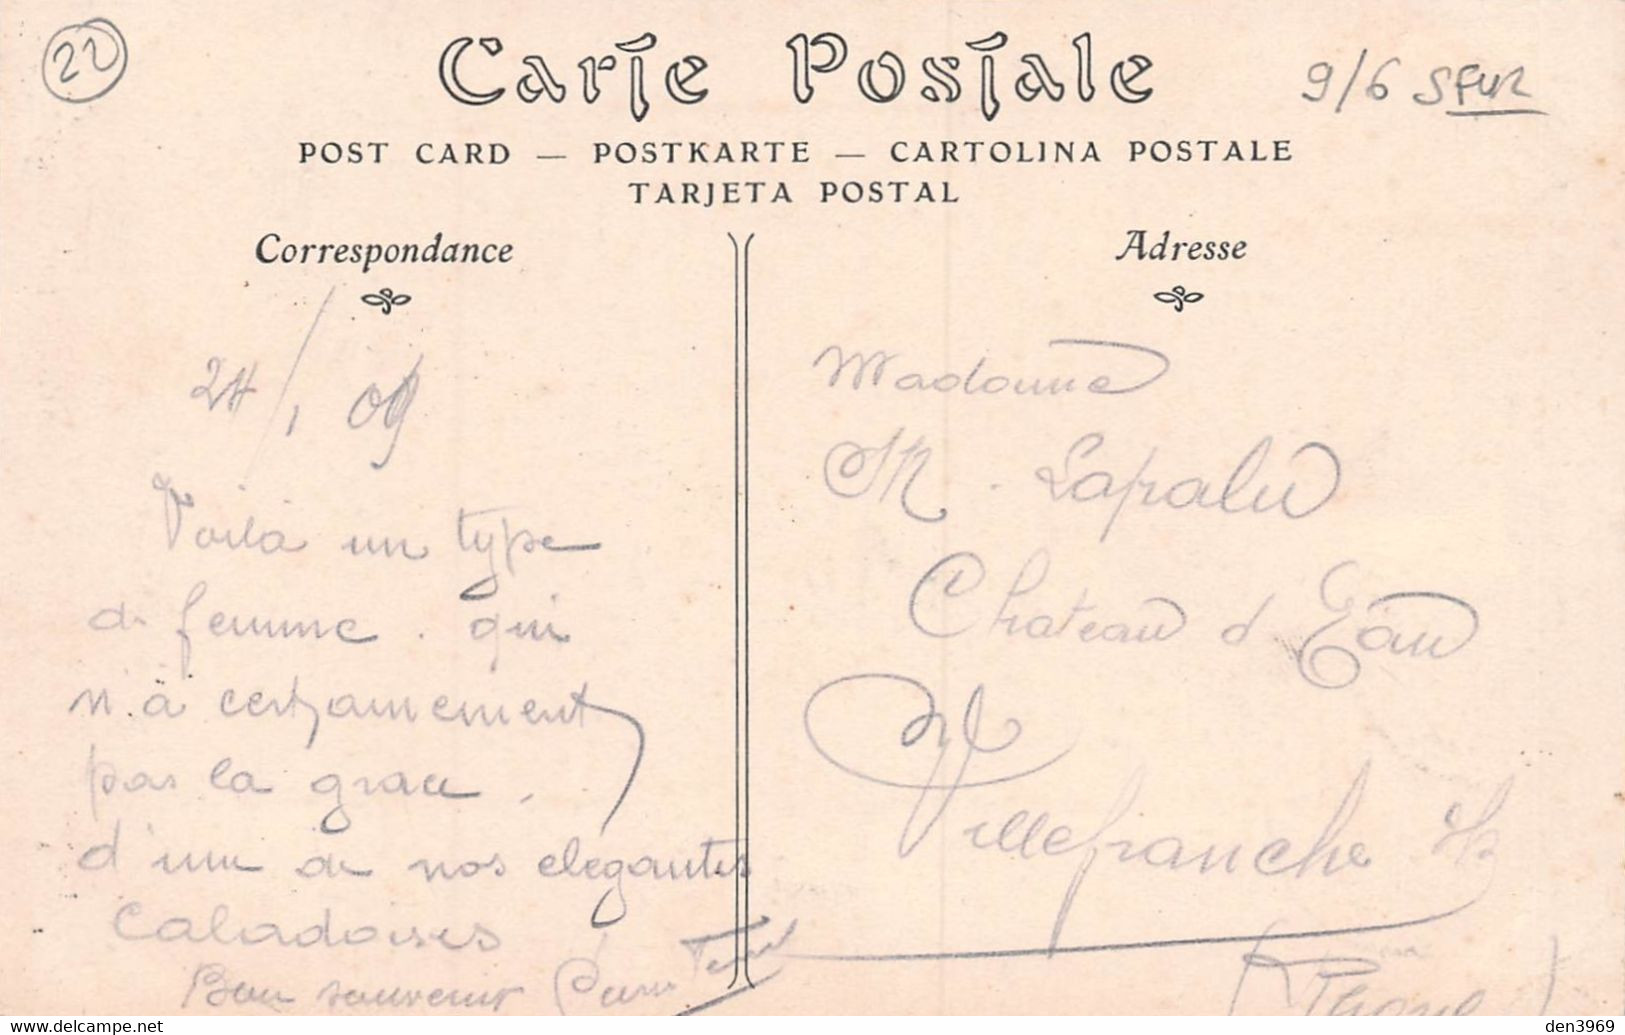 22
Carte Postale
9/6
POST CARD — POSTKARTE — CARTOLINA POSTALE
TARJETA POSTAL
Correspondance
24/1 09
Voilà un type
de femme . qui
n'a certainement
pas la grace
d'une de nos elegantes
Caladoises
Bon souvenir
Adresse
Madame
M . Lapalu
Chateau d Eau
Villefranche s/s
(Rhone)
den3969